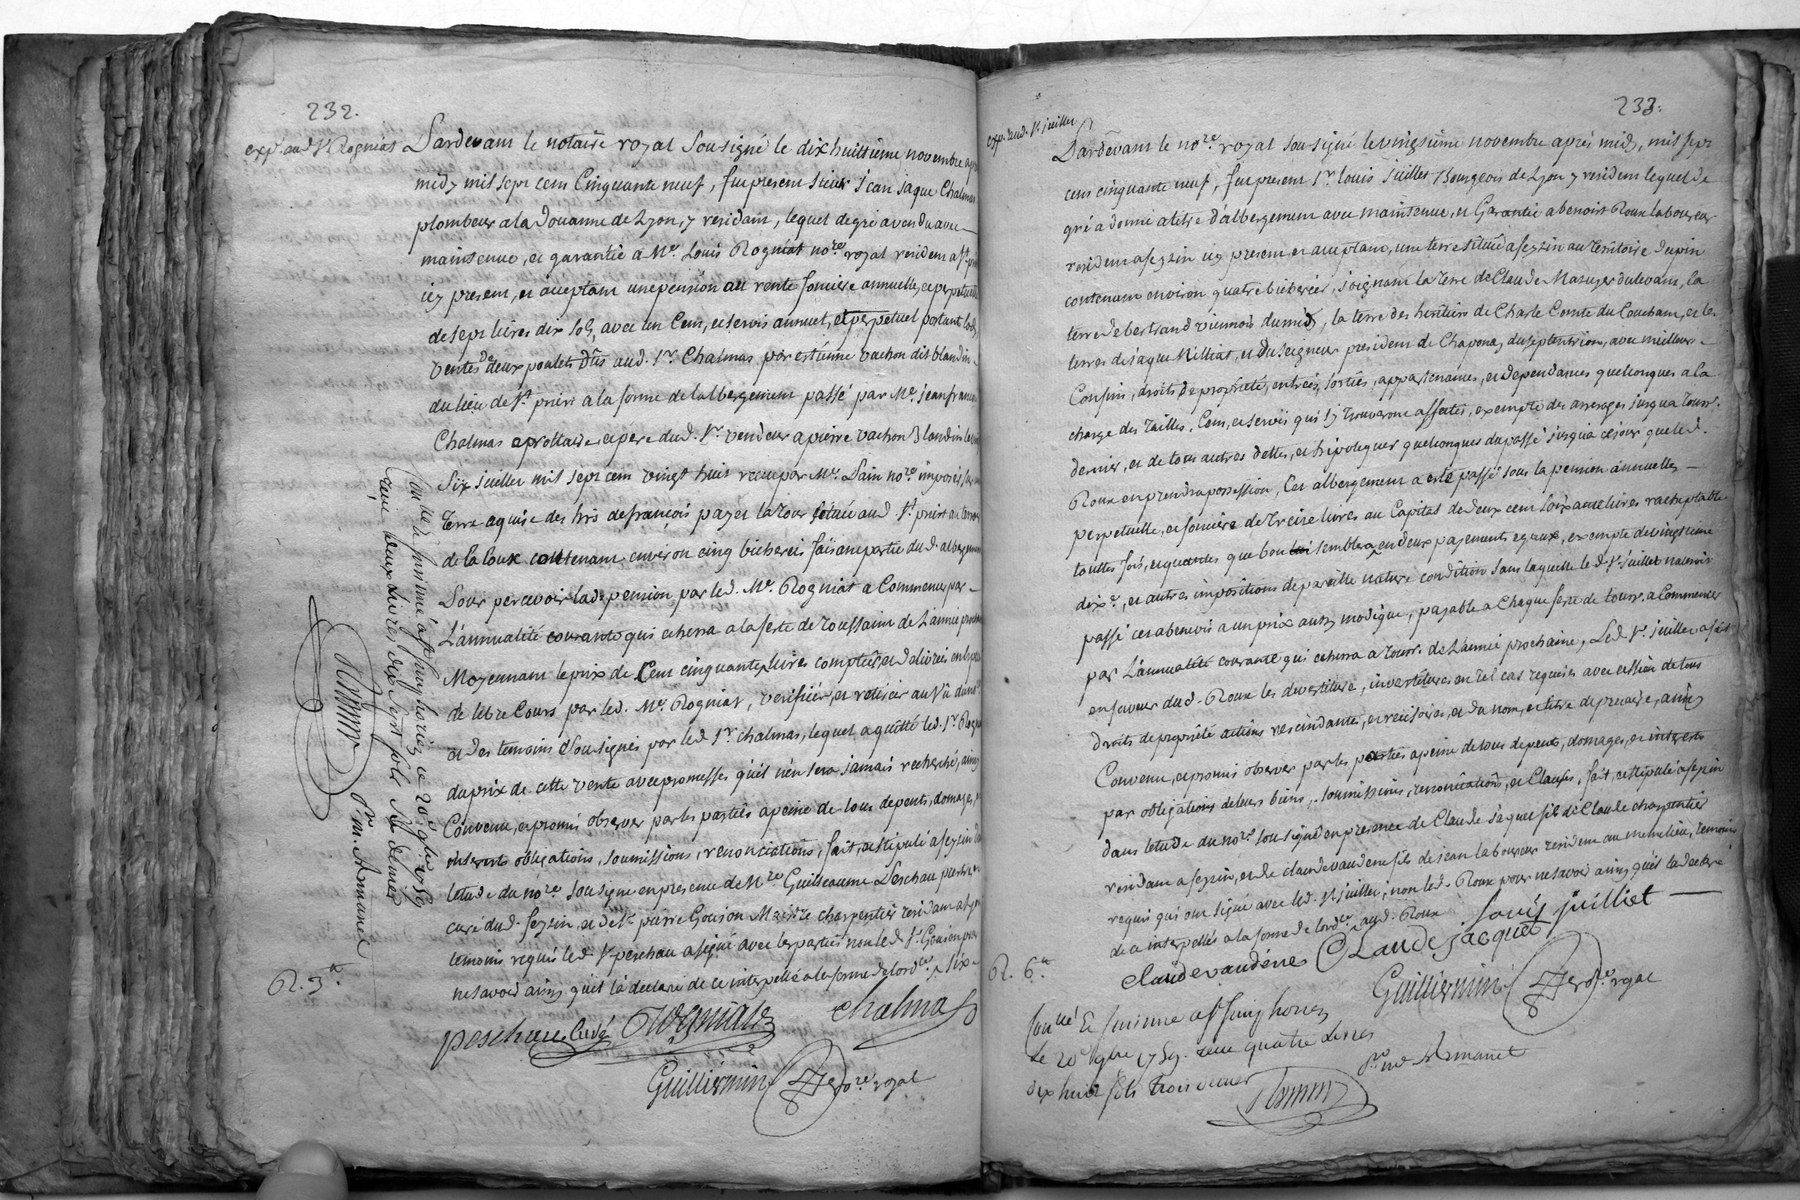 232.
exp. aud. Sr Rogniat
Pardevant le notaire royal Sousigné le dix huitième novembre après
midy mil sept cent Cinquante neuf, fut present Sieur Jean Jaque Chalmas
plombeur a la Douanne de Lyon, y residant, lequel de gré a vendu avec
maintenue, et garantie à Me. Louis Rogniat nore royal resident a St
icy present, et acceptant une pension au rente fonciere annuelle, et perpetuelle
de sept livres dix sols, avec un Cens, et servis annuel, et perpetuel portant lods,
ventes de deux poulets dûs aud. Sr. Chalmas par estienne vachon dit blandin
du lieu de St. priest a la forme de l'albergement passé par Me. jean francois
Chalmas et pere dud. Sr. vendeur a pierre vachon Blandin le
Six juillet mil sept cent vingt huit receu par Me. nore imposés sur une
terre aquise des hrs de françois payet la Tour située aud. St. priest au territoire
de la Coux contenant environ cinq bicherées faisant partie dud. albergement
Pour percevoir lade pension par led. Me. Rogniat a Commencer par
L'annualité courante qui echerra a la feste de Toussaint de L'année prochaine
Moyennant le prix de Cent cinquante livres comptées, et delivrées en especes
de libre Cours par led. Me. Rogniat, verifiées, et retirées au vû dud. nore
et des temoins Sousignés par led. Sr. Chalmas, lequel a quitté led. Sr. Rogniat
du prix de cette vente avec promesses qu'il n'en sera jamais recherché, ainsy
Convenu, et promis observer par les parties a peine de tous depents, domages, et
interests obligations, soumissions, renonciations, fait, et stipulé a feyzin dans
letude du nore sousigné en presence de Mre Guilleaume Peschau pretre et
curé dud. feyzin, et de Sr. pierre Goujon Maitre charpentier residant a Lyon
temoins requis led. Sr peschau a signé avec les parties non led. Sr Goujon pour
ne savoir ainsy qu'il la declaré de ce interpellé a la forme de lordce
peschau Curé Rogniat Chalmas
Guillermin nore royal
R. 3.
a St simphorien ce 20e 9bre 1759
receu deux livres
Pr m. Armanet
233.
exp. aud. Sr. juillet
Pardevant le nore. royal sousigné le vingtième novembre après midy, mil sept
cens cinquante neuf, fut present Sr. louis juillet Bourgeois de Lyon y resident lequel de
gré a donné a titre d'albergement avec maintenue, et Garantie a benoist Roux laboureur
resident a feyzin icy present et acceptant, une terre située a feyzin au territoire du pin
contenant environ quatre bicherées, joignant la terre de Claude Mazuyer du levant, la
terre de bertrand viennois du midy, la terre des heritiers de Charle Comte du Couchant, et les
terres de jaque Milliat, et du seigneur president de Chaponay du septentrion, avec meilleurs
Confins, droits de proprieté, entrées, sorties, appartenances, et dependances quelconques a la
charge des Tailles, Cens, et servis qui s'y trouveront affectés, exempte des arrerages jusqu'a Touss.
dernier, et de tous autres dettes, et hipoteques quelconques du passé jusqu'a ce jour que led.
Roux en prendra possession, Cet albergement a eté passé sous la pension annuelle,
perpetuelle, et fonciere de Treize livres au Capital de deux cent soixante livres rachetable
touttes fois, et quantes que bon lui semblera en deux payements egaux, exempte de vingtieme
dixe, et autres impositions de pareille nature condition sans laquelle led. Sr. juillet nauroit
passé cet abenevis a un prix aussy modique, payable a Chaque feste de touss. a Commencer
par L'annualité courante qui echerra a Touss. de L'année prochaine, Led. Sr. juillet a fait
en faveur dud. Roux les devestiture, investitures en tel cas requises avec cession de tous
droits de proprieté actions rescindantes, et rescisoires, et du nom, et titre de precaire, ainsy
Convenu, et promis observer par les parties a peine de tous depents, domages, et interests
par obligations de leurs biens, soumissions, renonciations, et Clauses, fait, et stipulé a feyzin
dans letude du nore sousigné en presence de Claude jaque fils de Claude charpentier
residant a feyzin, et de claude vaudene fils de jean laboureur resident au meme lieu, temoins
requis qui ont signé avec led. Sr juillet, non led. Roux pour ne savoir ainsy qu'il la declaré
de ce interpellé a la forme de lordce aud. Roux
Louis juillet
Claude vaudenes Claude jacque
Guillermin nore royal
R. 6.
a St simphorien
le 20e 9bre 1759. receu quatre livres
dix huit sols trois deniers
Pr m. Armanet